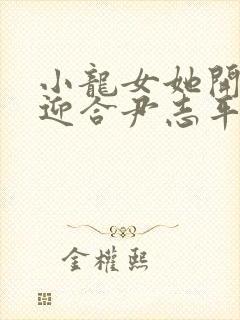 小龍女她開
迎合尹志平
金權熙